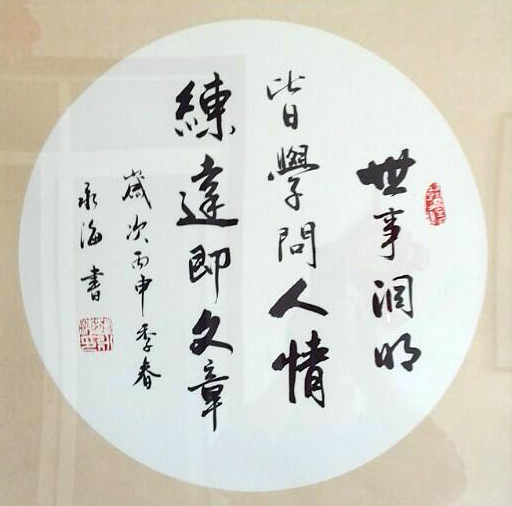 世事洞明
皆學問人情
練達即文章
歲次丙申季春
永海書